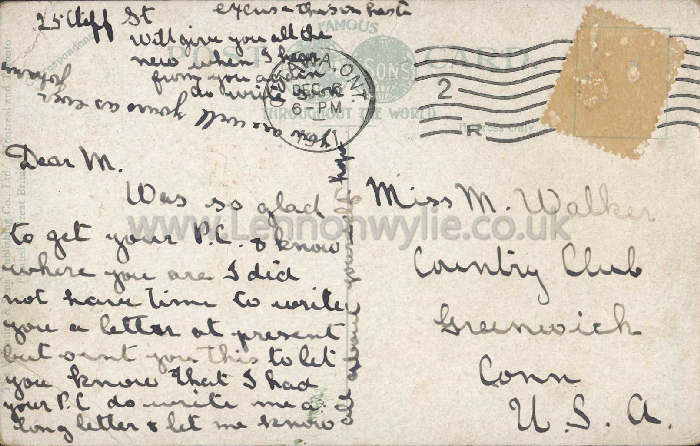 25 Cliff St
excuse this in haste
Will give you all the
new when I hear
from you again
do write soon
Dear M.
Was so glad
to get your P.C. & know
where you are I did
not have time to write
you a letter at present
but sent you this to let
you know that I had
your P.C. do write me a
long letter & let me know
all about yourself hope
you are well yours as ever
POST CARD
FAMOUS
THROUGHOUT THE WORLD
OTTAWA, ONT.
DEC
6-PM
2
R
Miss M. Walker
Country Club
Greenwich
Conn
U.S.A.
www.Lennonwylie.co.uk